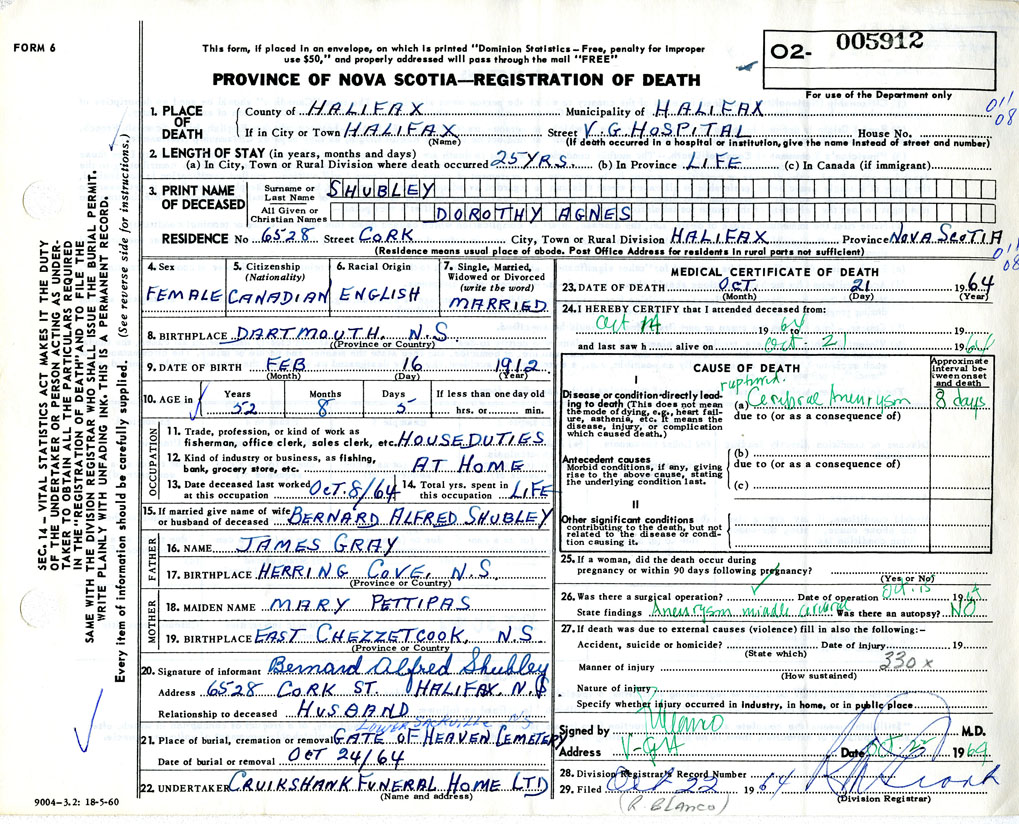 FORM 6
This form, if placed in an envelope, on which is printed "Dominion Statistics – Free, penalty for improper
use $50," and properly addressed will pass through the mail "FREE"
PROVINCE OF NOVA SCOTIA—REGISTRATION OF DEATH
O2- 005912
For use of the Department only
011
08
1. PLACE OF DEATH
County of HALIFAX Municipality of HALIFAX
If in City or Town HALIFAX Street V.G. HOSPITAL House No.
(Name) (If death occurred in a hospital or institution, give the name instead of street and number)
2. LENGTH OF STAY (in years, months and days)
(a) In City, Town or Rural Division where death occurred 25 YRS. (b) In Province LIFE (c) In Canada (if immigrant)
3. PRINT NAME OF DECEASED
Surname or Last Name SHUBLEY
All Given or Christian Names DOROTHY AGNES
RESIDENCE No 6528 Street CORK City, Town or Rural Division HALIFAX Province NOVA SCOTIA
(Residence means usual place of abode. Post Office Address for residents in rural parts not sufficient)
011
08
4. Sex FEMALE
5. Citizenship (Nationality) CANADIAN
6. Racial Origin ENGLISH
7. Single, Married, Widowed or Divorced (write the word) MARRIED
8. BIRTHPLACE DARTMOUTH, N.S.
(Province or Country)
9. DATE OF BIRTH FEB 16 1912
(Month) (Day) (Year)
10. AGE in Years Months Days If less than one day old
52 8 5 hrs. or min.
OCCUPATION
11. Trade, profession, or kind of work as
fisherman, office clerk, sales clerk, etc. HOUSE DUTIES
12. Kind of industry or business, as fishing,
bank, grocery store, etc. AT HOME
13. Date deceased last worked at this occupation OCT. 8/64 14. Total yrs. spent in this occupation LIFE
15. If married give name of wife
or husband of deceased BERNARD ALFRED SHUBLEY
FATHER
16. NAME JAMES GRAY
17. BIRTHPLACE HERRING COVE, N.S.
(Province or Country)
MOTHER
18. MAIDEN NAME MARY PETTIPAS
19. BIRTHPLACE EAST CHEZZETCOOK, N.S.
(Province or Country)
20. Signature of informant Bernard Alfred Shubley
Address 6528 CORK ST. HALIFAX N.S.
Relationship to deceased HUSBAND
LOWER SACKVILLE N/S
21. Place of burial, cremation or removal GATE OF HEAVEN CEMETERY
Date of burial or removal OCT 24/64
22. UNDERTAKER CRUIKSHANK FUNERAL HOME LTD
(Name and address)
9004–3.2: 18-5-60
MEDICAL CERTIFICATE OF DEATH
23. DATE OF DEATH OCT. 21 1964
(Month) (Day) (Year)
24. I HEREBY CERTIFY that I attended deceased from:
Oct 14 1964 to 19
and last saw h alive on Oct. 21 1964
CAUSE OF DEATH
Approximate interval between onset and death
I
Disease or condition directly leading to death (This does not mean the mode of dying, e.g., heart failure, asthenia, etc. It means the disease, injury, or complication which caused death.)
ruptured.
(a) Cerebral Aneurysm 8 days
due to (or as a consequence of)
Antecedent causes
Morbid conditions, if any, giving rise to the above cause, stating the underlying condition last.
(b)
due to (or as a consequence of)
(c)
II
Other significant conditions
contributing to the death, but not related to the disease or condition causing it.
25. If a woman, did the death occur during
pregnancy or within 90 days following pregnancy?
(Yes or No)
26. Was there a surgical operation? Date of operation Oct. 15 1964
State findings Aneurysm middle cerebral Was there an autopsy? NO
27. If death was due to external causes (violence) fill in also the following:–
Accident, suicide or homicide? Date of injury 19
(State which)
330 x
Manner of injury
(How sustained)
Nature of injury
Specify whether injury occurred in industry, in home, or in public place
Signed by M.D.
Address V-GH Date Oct 25 1964
28. Division Registrar's Record Number
29. Filed Oct 22 1964
(R. BLANCO) (Division Registrar)
SEC. 14 – VITAL STATISTICS ACT MAKES IT THE DUTY
OF THE UNDERTAKER OR PERSON ACTING AS UNDER-
TAKER TO OBTAIN ALL THE PARTICULARS REQUIRED
IN THE "REGISTRATION OF DEATH" AND TO FILE THE
SAME WITH THE DIVISION REGISTRAR WHO SHALL ISSUE THE BURIAL PERMIT.
WRITE PLAINLY WITH UNFADING INK. THIS IS A PERMANENT RECORD.
Every item of information should be carefully supplied. (See reverse side for instructions.)